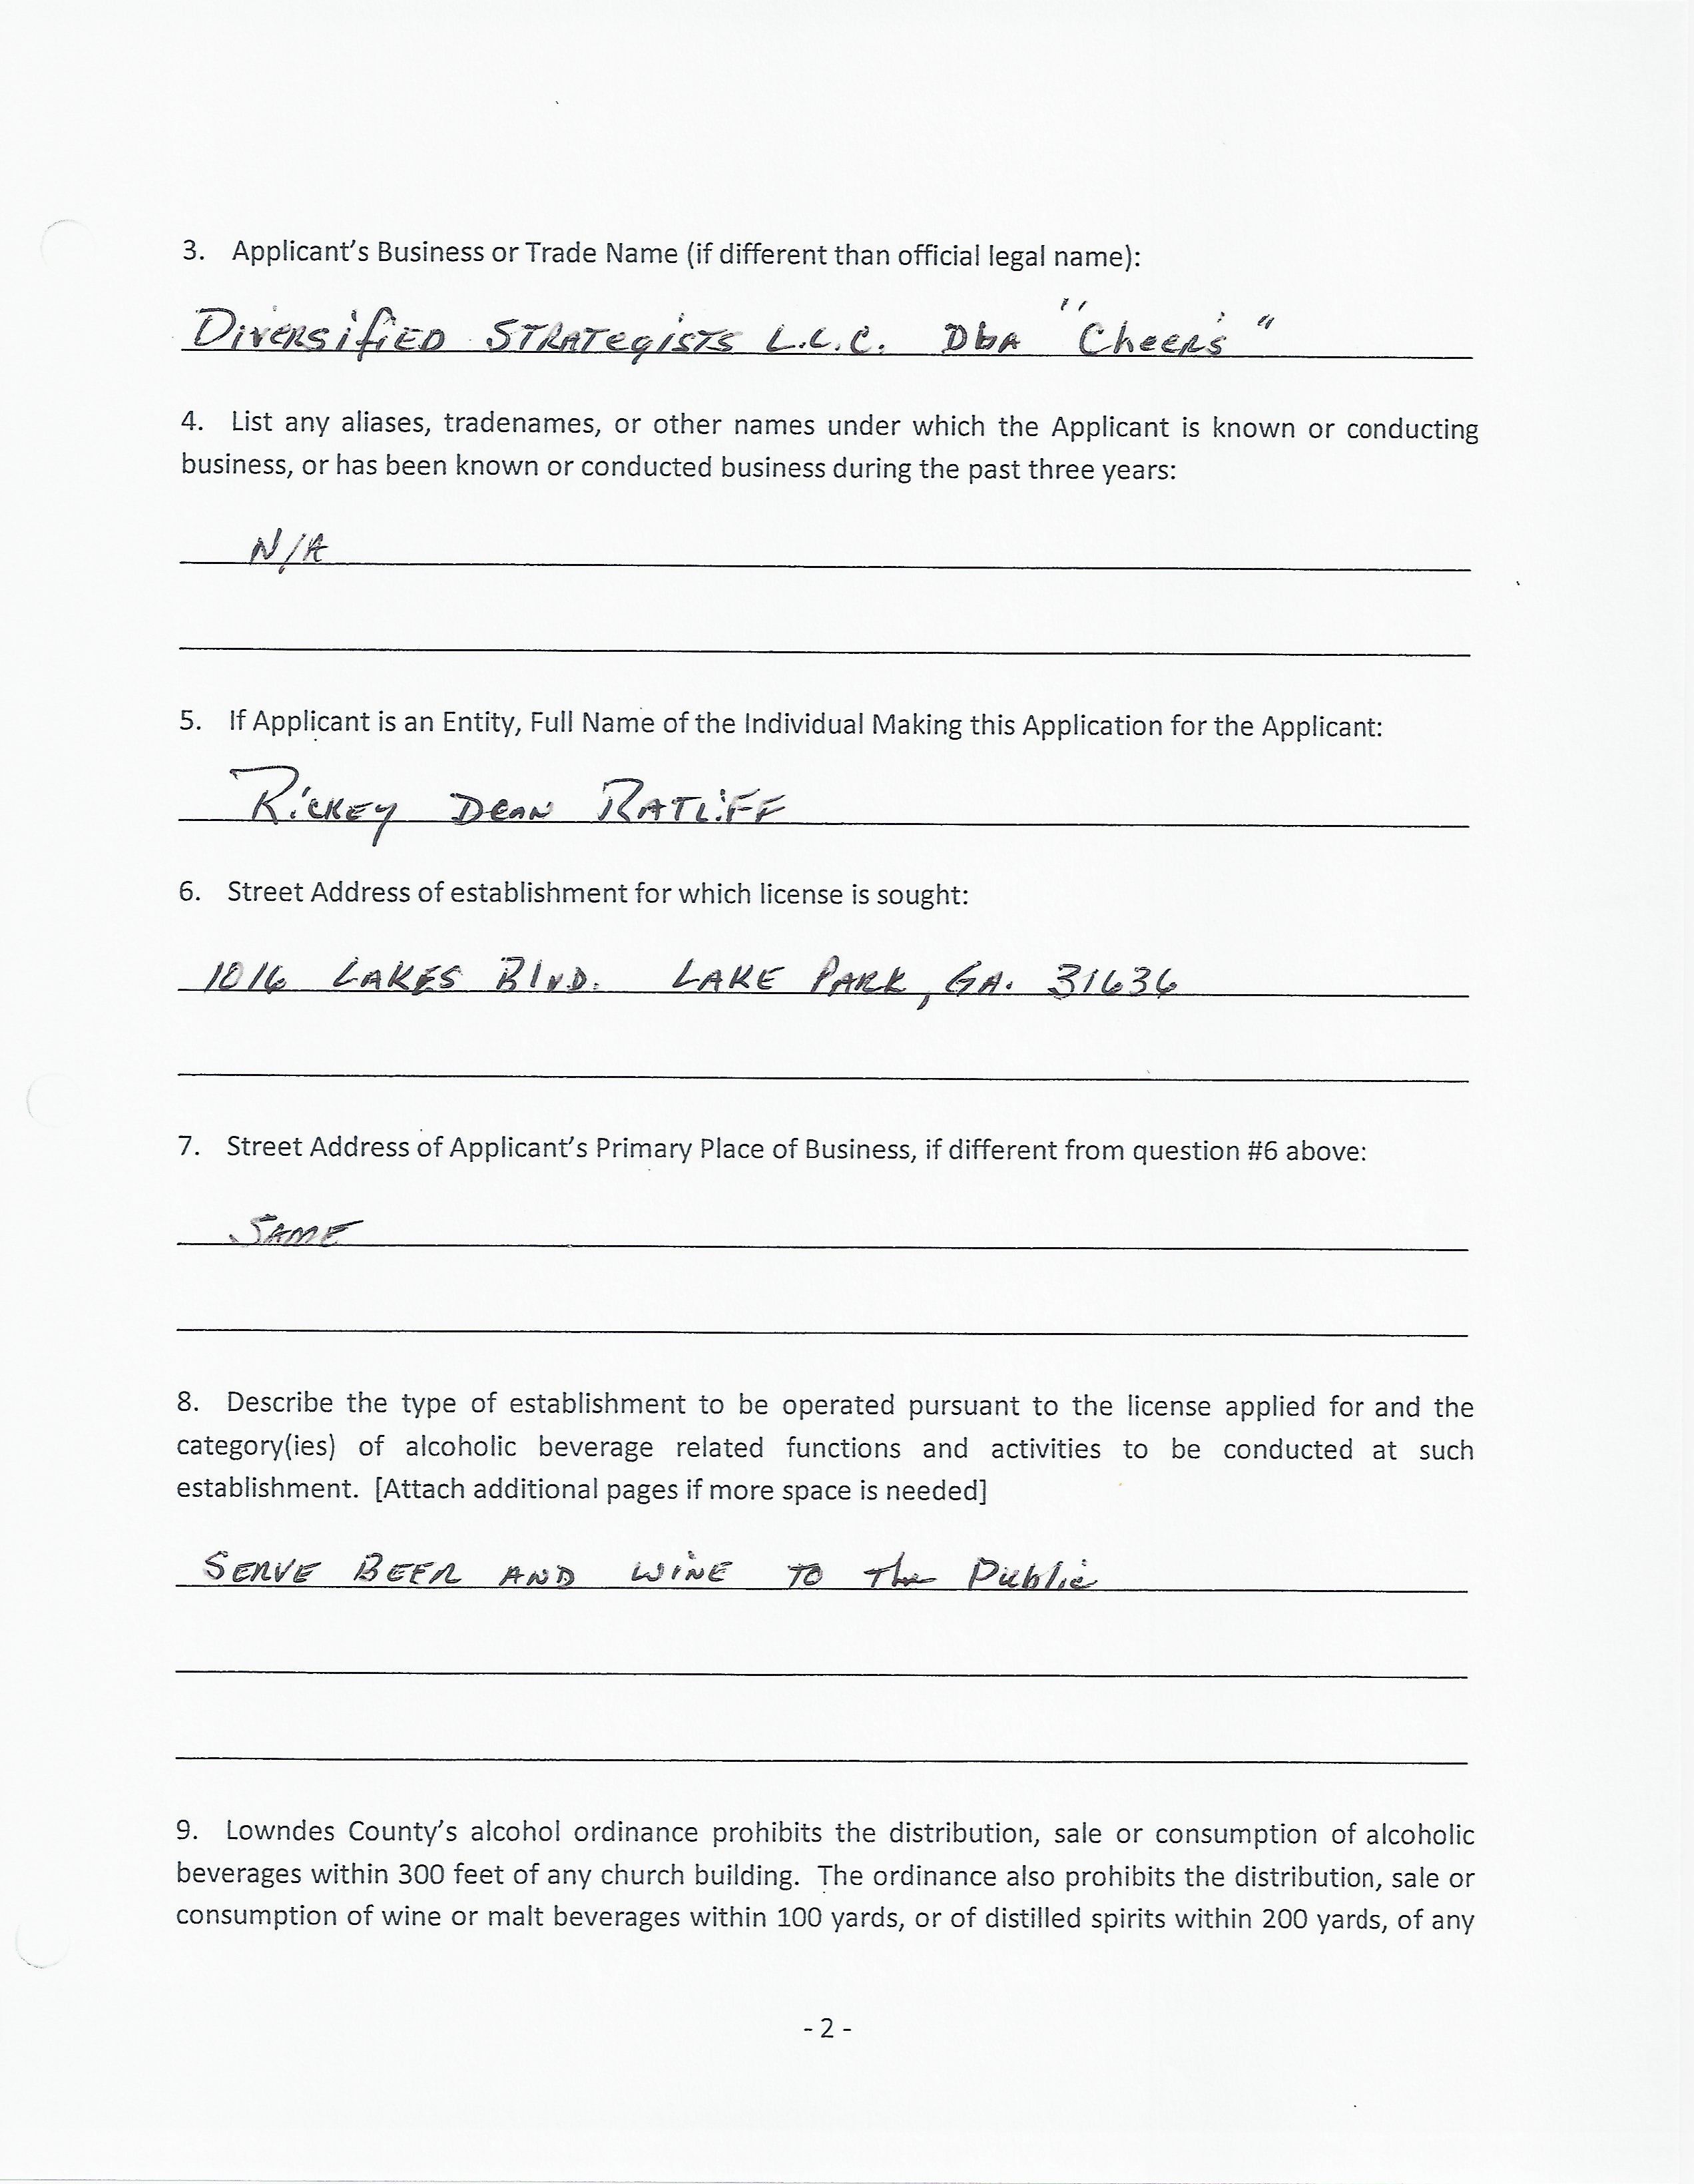 3. Applicant's Business or Trade Name (if different than official legal name):
Diversified Strategists L.L.C. Dba "Cheer's"
4. List any aliases, tradenames, or other names under which the Applicant is known or conducting
business, or has been known or conducted business during the past three years:
N/A
5. If Applicant is an Entity, Full Name of the Individual Making this Application for the Applicant:
Rickey Dean Ratliff
6. Street Address of establishment for which license is sought:
1016 LAKES Blvd. LAKE PARK, GA. 31636
7. Street Address of Applicant's Primary Place of Business, if different from question #6 above:
SAME
8. Describe the type of establishment to be operated pursuant to the license applied for and the
category(ies) of alcoholic beverage related functions and activities to be conducted at such
establishment. [Attach additional pages if more space is needed]
SERVE BEER AND WINE TO The Public
9. Lowndes County's alcohol ordinance prohibits the distribution, sale or consumption of alcoholic
beverages within 300 feet of any church building. The ordinance also prohibits the distribution, sale or
consumption of wine or malt beverages within 100 yards, or of distilled spirits within 200 yards, of any
- 2 -